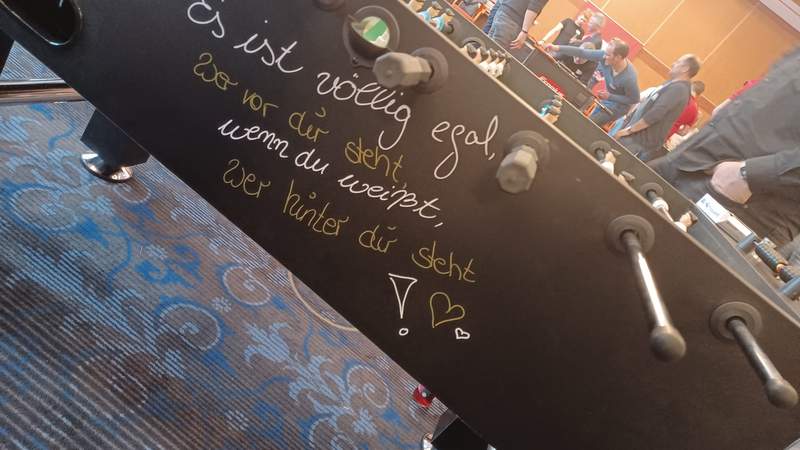 Es ist völlig egal,
Wer vor dir steht,
wenn du weißt,
Wer hinter dir steht
!